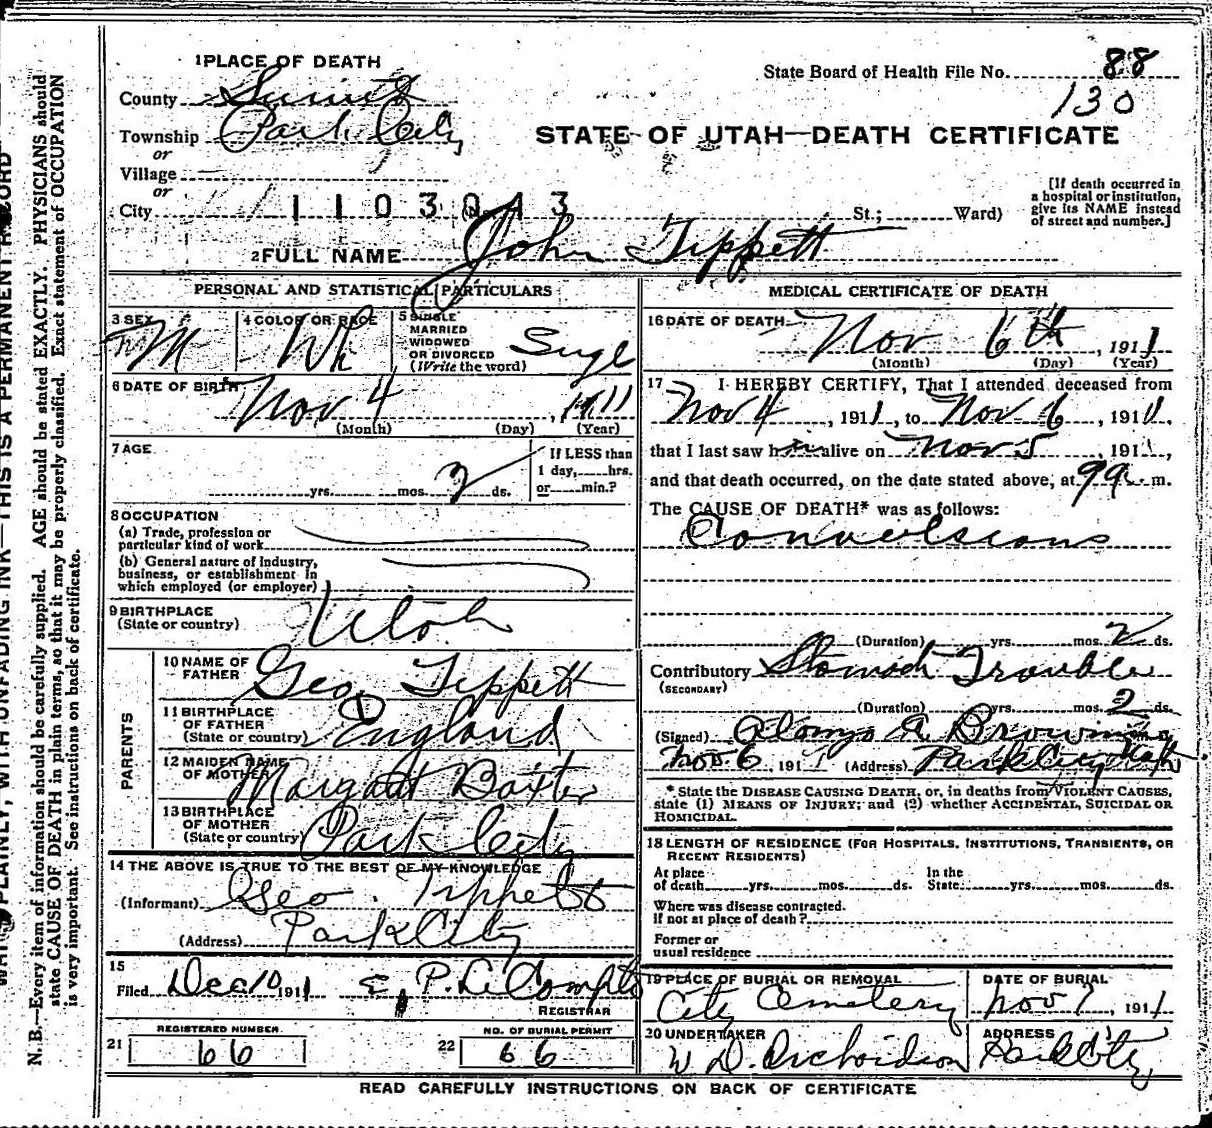 1 PLACE OF DEATH
County Summit
Township Park City
or
Village
or
City
1103043
State Board of Health File No. 88
130
STATE OF UTAH—DEATH CERTIFICATE
St.; Ward)
[If death occurred in
a hospital or institution,
give its NAME instead
of street and number.]
2 FULL NAME John Tippett
PERSONAL AND STATISTICAL PARTICULARS
3 SEX M
4 COLOR OR RACE Wh
5 SINGLE
MARRIED
WIDOWED
OR DIVORCED
(Write the word) Sugl
6 DATE OF BIRTH Nov 4, 1911
(Month) (Day) (Year)
7 AGE
yrs. mos. 2 ds.
If LESS than
1 day, hrs.
or min.?
8 OCCUPATION
(a) Trade, profession or
particular kind of work
(b) General nature of Industry,
business, or establishment in
which employed (or employer)
9 BIRTHPLACE
(State or country) Utah
PARENTS
10 NAME OF
FATHER Geo Tippett
11 BIRTHPLACE
OF FATHER
(State or country) England
12 MAIDEN NAME
OF MOTHER Margrett Baxter
13 BIRTHPLACE
OF MOTHER
(State or country) Park City
14 THE ABOVE IS TRUE TO THE BEST OF MY KNOWLEDGE
(Informant) Geo. Tippett
(Address) Park City
15
Filed Dec 10 1911 E. P. Le Compte
REGISTRAR
REGISTERED NUMBER
21 66
NO. OF BURIAL PERMIT
22 66
MEDICAL CERTIFICATE OF DEATH
16 DATE OF DEATH Nov 6th, 1911
(Month) (Day) (Year)
17 I HEREBY CERTIFY, That I attended deceased from
Nov 4, 1911, to Nov 6, 1911,
that I last saw him alive on Nov 5, 1911,
and that death occurred, on the date stated above, at 9 a. m.
The CAUSE OF DEATH* was as follows:
Convulsions
(Duration) yrs. mos. 2 ds.
Contributory Stomach Trouble
(SECONDARY)
(Duration) yrs. mos. 2 ds.
(Signed) Alonzo A. Brown
Nov. 6, 1911 (Address) Park City Utah
* State the DISEASE CAUSING DEATH, or, in deaths from VIOLENT CAUSES,
state (1) MEANS OF INJURY; and (2) whether ACCIDENTAL, SUICIDAL OR
HOMICIDAL.
18 LENGTH OF RESIDENCE (FOR HOSPITALS, INSTITUTIONS, TRANSIENTS, OR
RECENT RESIDENTS)
At place
of death yrs. mos. ds.
In the
State yrs. mos. ds.
Where was disease contracted,
if not at place of death?
Former or
usual residence
19 PLACE OF BURIAL OR REMOVAL
City Cemetery
DATE OF BURIAL
Nov 7, 1911
20 UNDERTAKER
W D.
ADDRESS
Park City
READ CAREFULLY INSTRUCTIONS ON BACK OF CERTIFICATE
PLAINLY, WITH UNFADING INK—THIS IS A PERMANENT RECORD
N. B.—Every item of information should be carefully supplied. AGE should be stated EXACTLY. PHYSICIANS should
state CAUSE OF DEATH in plain terms, so that it may be properly classified. Exact statement of OCCUPATION
is very important. See instructions on back of certificate.